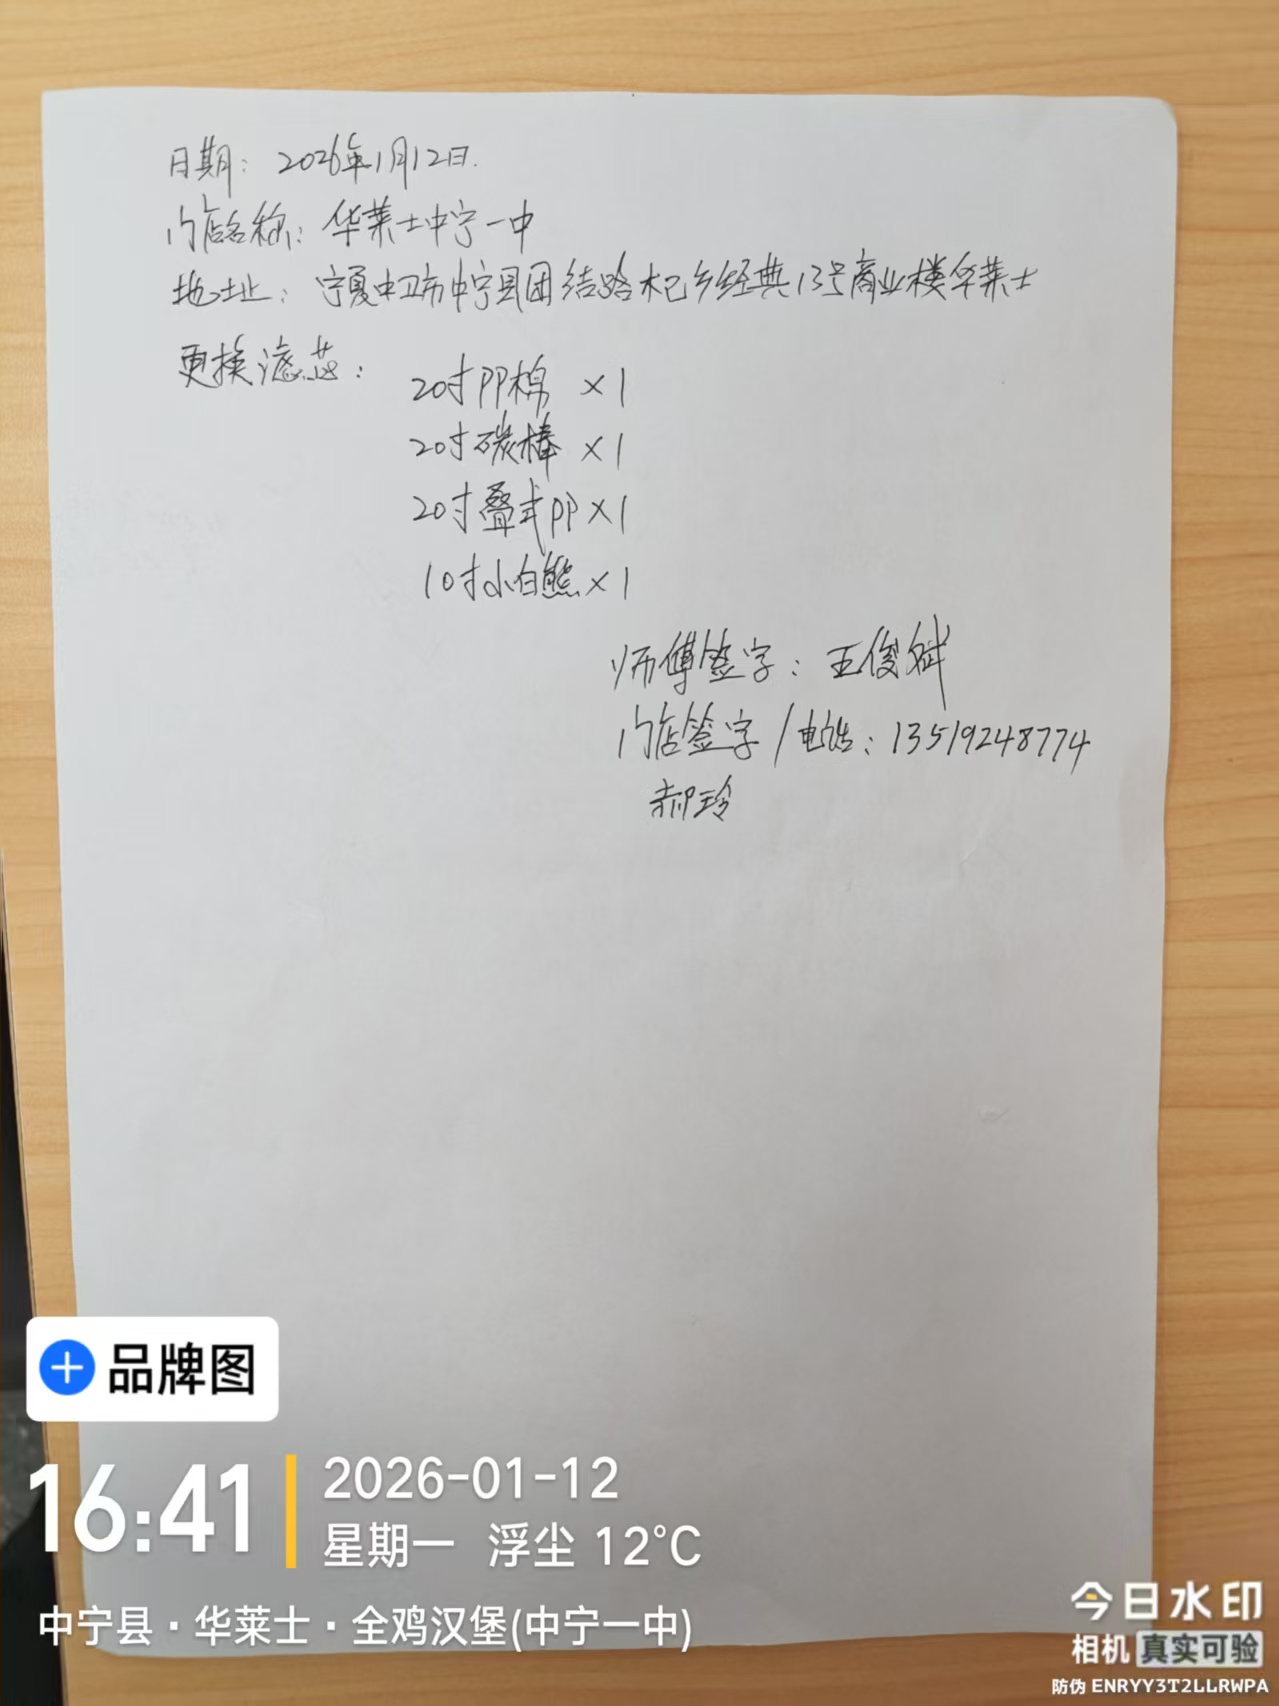 日期：2026年1月12日.
门店名称：华莱士中宁一中
地址：宁夏中卫市中宁县团结路杞乡经典13号商业楼华莱士
更换滤芯：
20寸PP棉 ×1
20寸碳棒 ×1
20寸叠式PP×1
10寸小白熊×1
师傅签字：王俊斌
门店签字/电话：13519248774
郝玲
品牌图
16:41
2026-01-12
星期一 浮尘 12°C
中宁县·华莱士·全鸡汉堡(中宁一中)
今日水印
相机 真实可验
防伪 ENRYY3T2LLRWPA